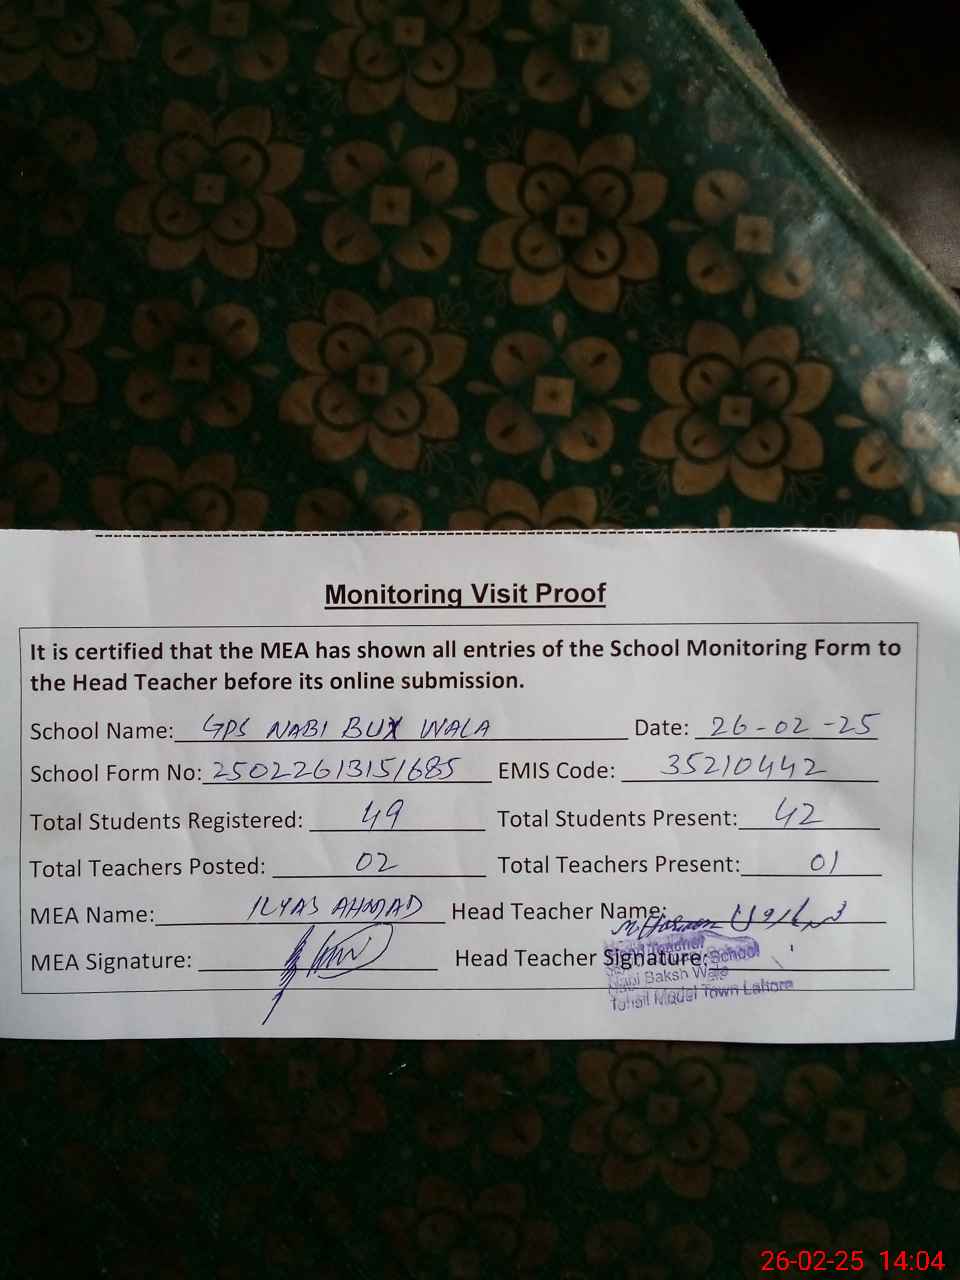 Monitoring Visit Proof
It is certified that the MEA has shown all entries of the School Monitoring Form to
the Head Teacher before its online submission.
School Name: GPS NABI BUX WALA Date: 26-02-25
School Form No: 25022613151685 EMIS Code: 35210442
Total Students Registered: 49 Total Students Present: 42
Total Teachers Posted: 02 Total Teachers Present: 01
MEA Name: ILYAS AHMAD Head Teacher Name:
MEA Signature: Head Teacher Signature:
Head Teacher
School
Nabi Baksh Wala
Tehsil Model Town Lahore
26-02-25 14:04